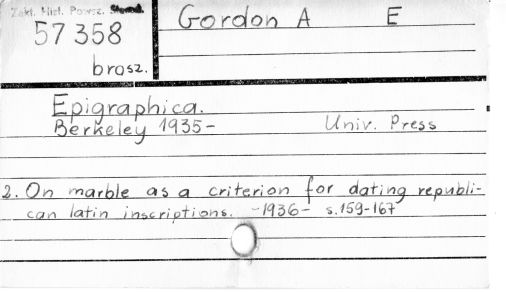 Zakł. Hist. Powsz.
57358
brosz.
Gordon A E
Epigraphica.
Berkeley 1935- Univ. Press
2. On marble as a criterion for dating republi-
can latin inscriptions. -1936- s.159-167